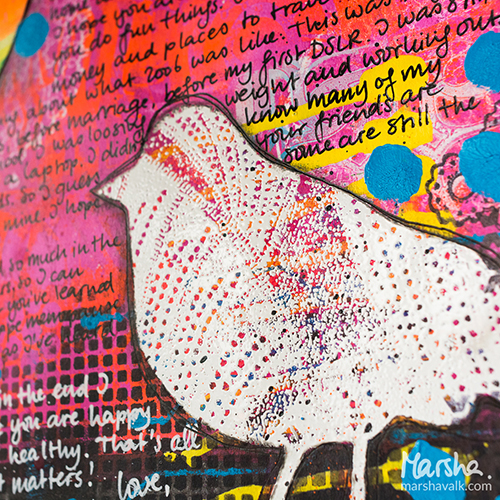 hope you a
you do fun things.
money and places to trav
about what 2006 was like. This was
before marriage, before my first DSLR. I was
I was loosing weight and working out
laptop. I didn't know many of my
so I guess your friends are
mine. I hope some are still the
so much in the
so I can
you've learned
in the end I
you are happy
healthy. That's all
matters!
love,
Marsha
marshavalk.com